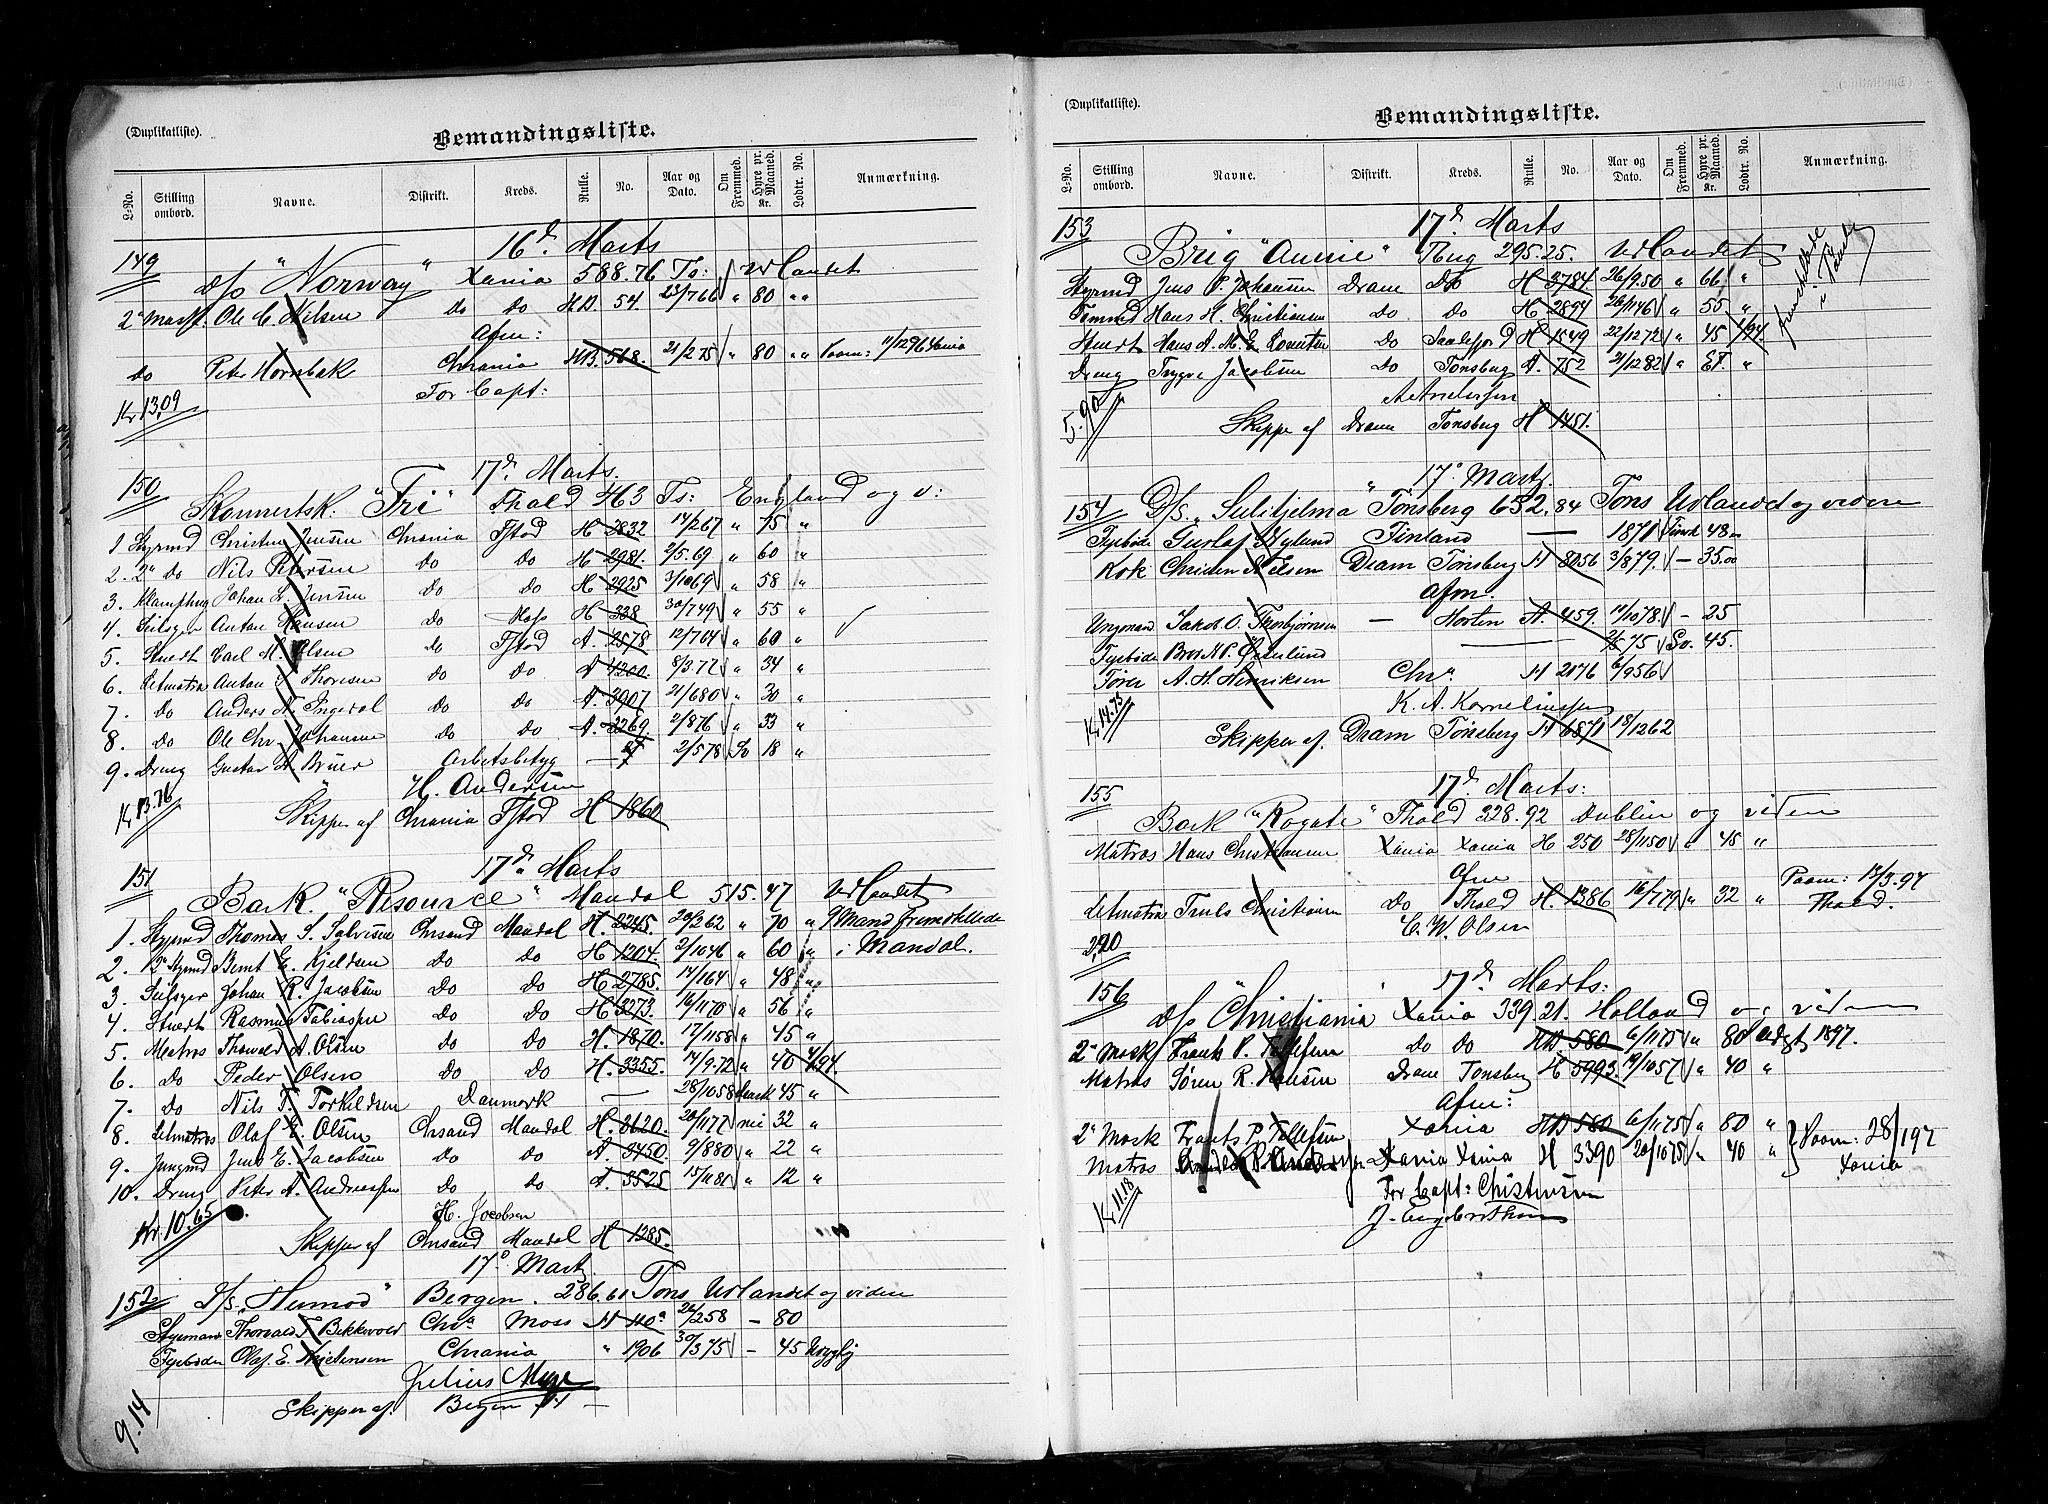 (Duplikatliste).
Bemandingsliste.
L-No. Stilling ombord. Navne. Distrikt. Kreds. Rulle. No. Aar og Dato. Om Fremmed. Hyre pr. Maaned. Kr. Lodtr. No. Anmærkning.
16d Marts
149 d/s "Norway" Xania 588.76 Ts: Udlandet
2n Mask. Ole C. Nilsen Do Do HD. 54. 23/766 " 80 " "
Afm:
Do Peter Hornbæk Chrania HB. 568. 21/275 " 80 " " Paam: 11/1296 Xania
Kr 13,09 For Capt:
17d Marts.
150 Skonnertsk. "Fri" Fhald 463 Ts: England og v:
1 Styrmd Christen Jensen Chrania Fstad H 2832 14/267 " 75 "
2. 2n Do Nils Do Do H 2981. 2/5.69 " 60 "
3. Johan L. Jensen Do Do H 2925 3/1069 " 58 "
4. Seilsgr Anton Hansen Do Moss H 338 30/749 " 55 "
5. Stuert Carl M. Olsen do Fstad A. 2578 12/764 " 60 "
6. Letmatros Anton Thoresen do Do A 4200. 8/3.77 " 34 "
7. Do Anders A. Ingerol Do Do A. 3907 21/680 " 30 "
8. Do Ole Chr. Johansen Do Do A. 2269. 2/876 " 33 "
9. Dreng Gustav A. Bruer Arbetsbetyg — 2/578 Sv 18 "
Kr 13.76 H. Andersen
Skipper af Chrania Fstad H 1860
17d Marts
151 Bark. "Resource" Mandal 515.47 Udlandet
1. Styrmd Thomas S. Salvesen Chrsand Mandal H. 2245. 20/262 " 70 " 9 Mand fremstillede
2. 2n Styrmd Bernt E. Kjeldsen Do Do H 1204. 2/1046 " 60 " i Mandal.
3. Seilsger Johan R. Jacobsen Do Do H 2785. 14/164 " 48 "
4. Stuert Rasmus Tobiassen Do Do H 3273. 16/1170 " 56 "
5. Matros Thorvald A. Olsen Do Do H. 1870. 17/1158 " 45 "
6. Do Peder Olsen Do Do H. 3355. 14/9.72 " 40 4/94.
7. Do Nils T. Torkildsen Danmark — 28/1058 dansk 45 "
8. Letmatros Olaf E. Olsen Chrsand Mandal H. 3620. 20/1177 nei 32 "
9. Jungmd Jens E. Jacobsen Do Do A. 3450. 9/880 " 22 "
10. Dreng Peter A. Andreassen Do Do A 3525 15/1181 " 12 "
Kr. 10.65 H. Jacobsen
Skipper af Chrsand Mandal H 1285.
17d Marts
152 D/s. "Hermod" Bergen. 286.61 Tons Udlandet og videre
Styrmand Thorvald T. Bekkevold Chra Moss H 110a 26/258 — 80
Fyrbøder Olaf E. Chrania " 1906 30/375 — 45
Julius
9.14 Skipper af. Bergen H —
(Duplikatliste).
Bemandingsliste.
L-No. Stilling ombord. Navne. Distrikt. Kreds. Rulle. No. Aar og Dato. Om Fremmed. Hyre pr. Maaned. Kr. Lodtr. No. Anmærkning.
153 17d Marts
Brig "Annie" Tbrg 295.25. Udlandet fremstillede i
Styrmd Jens P. Johansen Dram Do H 3784. 26/9.50 " 66 "
Tømmd Hans H. Christiansen Do Do H 2894 26/1146 " 55 "
Stuert Hans A. M. E. Do Sandefjord H 1549 22/1272 " 45 1/94.
Dreng Trygve Jacobsen Do Tønsberg A. 752 21/1282 " Et. "
A Andersen
5.90 Skipper af Dram Tønsberg H 1451.
17d Marts
154 D/s. "Sulitjelma" Tønsberg 652.84 Tons Udlandet og videre
Fyrbøder Gustaf Nylund Finland — 1871 Finsk 48.
Kok Christen Nilsen Dram Tønsberg H 8056 3/879. — 35.00
Afm.
Ungmand Jakob O. Thorbjørnsen — Horten A. 459. 11/1078 — 25
Fyrbøder Bror A. P. — 75 Sv. 45.
Fører A. H. Henriksen Chra H 2076 6/956
Kr 14.75 K. A. Kornelius
Skipper af. Dram Tønsberg H 6871 18/1262
155 17d Marts:
Bark "Rogate" Fhald 328.92 Dublin og viden
Matros Hans Christiansen Xania Xania H 250 28/1150 " 45 "
Afm
Letmatros Truls Christiansen Do Fhald H. 1386 16/779 " 32 " Paam: 17/3.97 Fhald.
2,20 C. W. Olsen
156 17d Marts:
d/s "Christiania Xania 339.21. Holland og viden
2n Mask Frants P. Tellefsen Do Do HD 580 6/1175 " 80 Udgt 1897.
Matros Søren R. Hansen Dram Tønsberg H 5993. 19/1057 " 40 "
Afm:
2n Mask Frants P. Tellefsen Xania HD 580 6/1175 " 80 "
Matros Xania Xania H 3390 20/1075 " 40 " Paam: 28/197 Xania
Kr 11.18 For Capt: Christensen
J. Engebrethsen